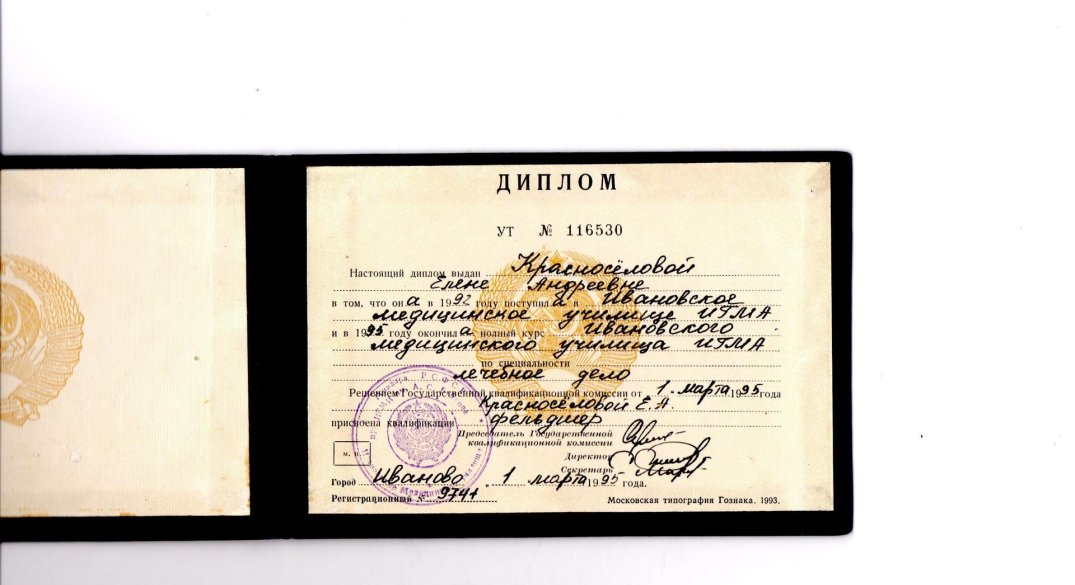 ДИПЛОМ
УТ № 116530
Настоящий диплом выдан Красносёловой
Елене Андреевне
в том, что она в 1992 году поступила в Ивановское
медицинское училище ИГМА
и в 1995 году окончила полный курс Ивановского
медицинского училища ИГМА
по специальности
лечебное дело
Решением Государственной квалификационной комиссии от 1 марта 1995 года
Красносёловой Е.А.
присвоена квалификация фельдшер
Председатель Государственной
квалификационной комиссии
Директор
Секретарь
м. п.
Город Иваново 1 марта 1995 года.
Регистрационный № 9741
Московская типография Гознака. 1993.